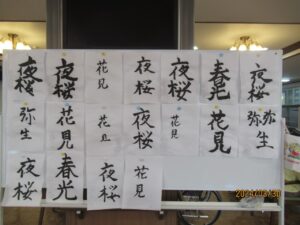 夜桜 夜桜 花見 夜桜 夜桜 春光 夜桜
弥生 花見 花見 夜桜 花見 花見 弥生
夜桜 春光 夜桜 花見